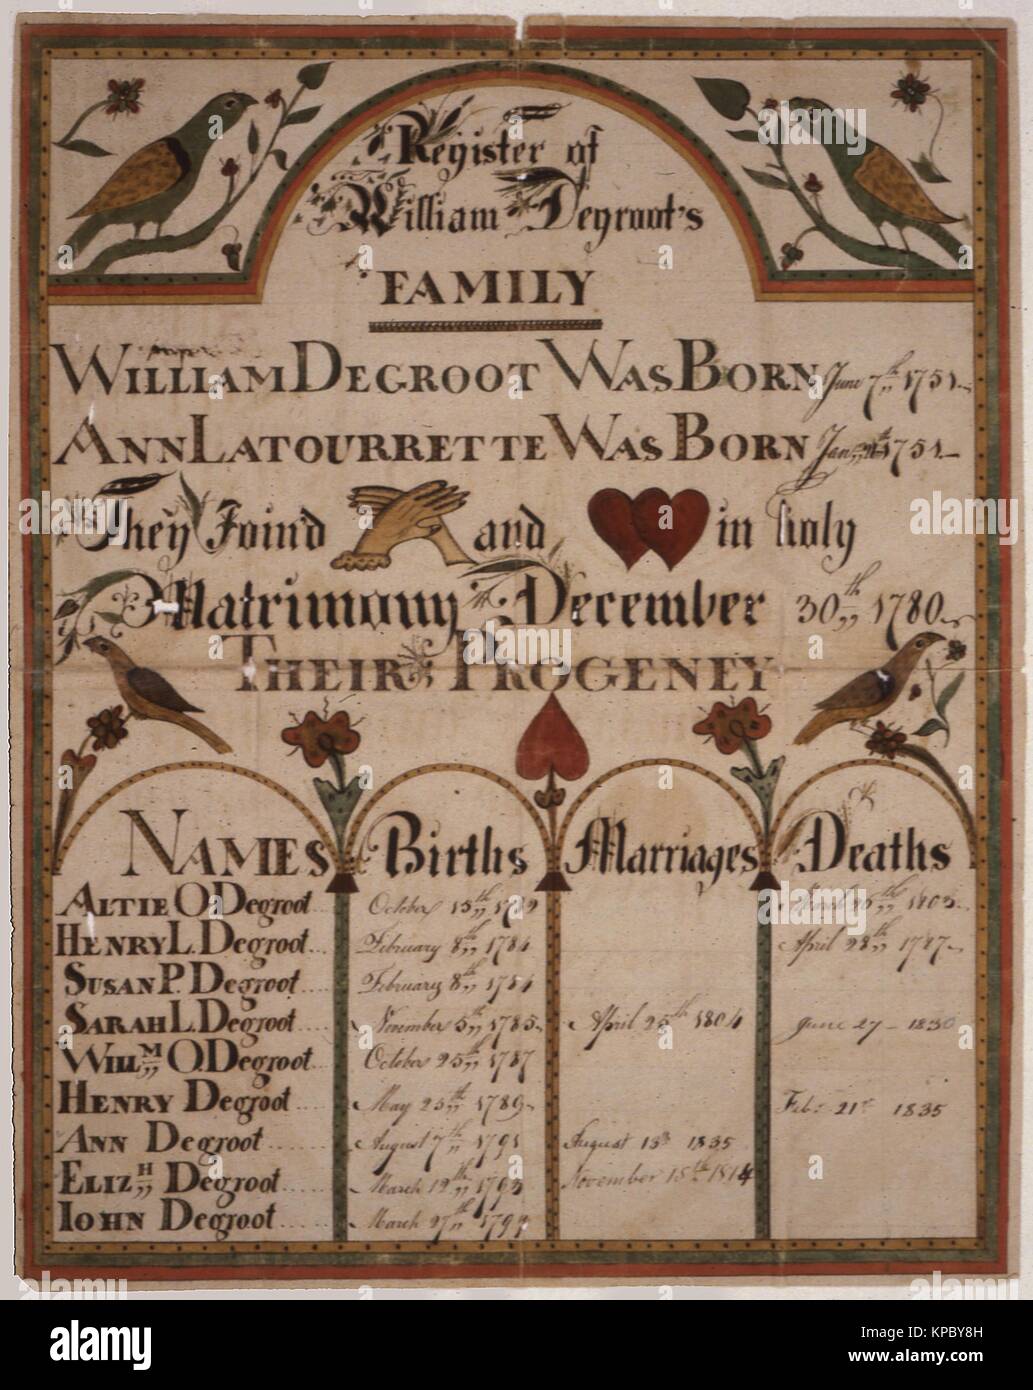 Register of
William Degroot's
FAMILY
WILLIAM DEGROOT WAS BORN June 7th 1751
ANN LATOURRETTE WAS BORN Jan 1751
They Join'd and in holy
Matrimony December 30th 1780
THEIR PROGENEY
NAMES Births Marriages Deaths
ALTIE O. Degroot October 13th March 1803
HENRY L. Degroot February 8th 1784 April 28th 1787
SUSAN P. Degroot February 8th 1784
SARAH L. Degroot November 5th 1785 April 25th 1804 June 27 1830
WILLM O. Degroot October 25th 1787
HENRY Degroot May 25th 1789 Feb: 21st 1835
ANN Degroot August 7th 1791 August 13th 1835
ELIZH Degroot March 12th 1793 November 15th 1814
IOHN Degroot March 27th
alamy
Image ID: KPBY8H
www.alamy.com